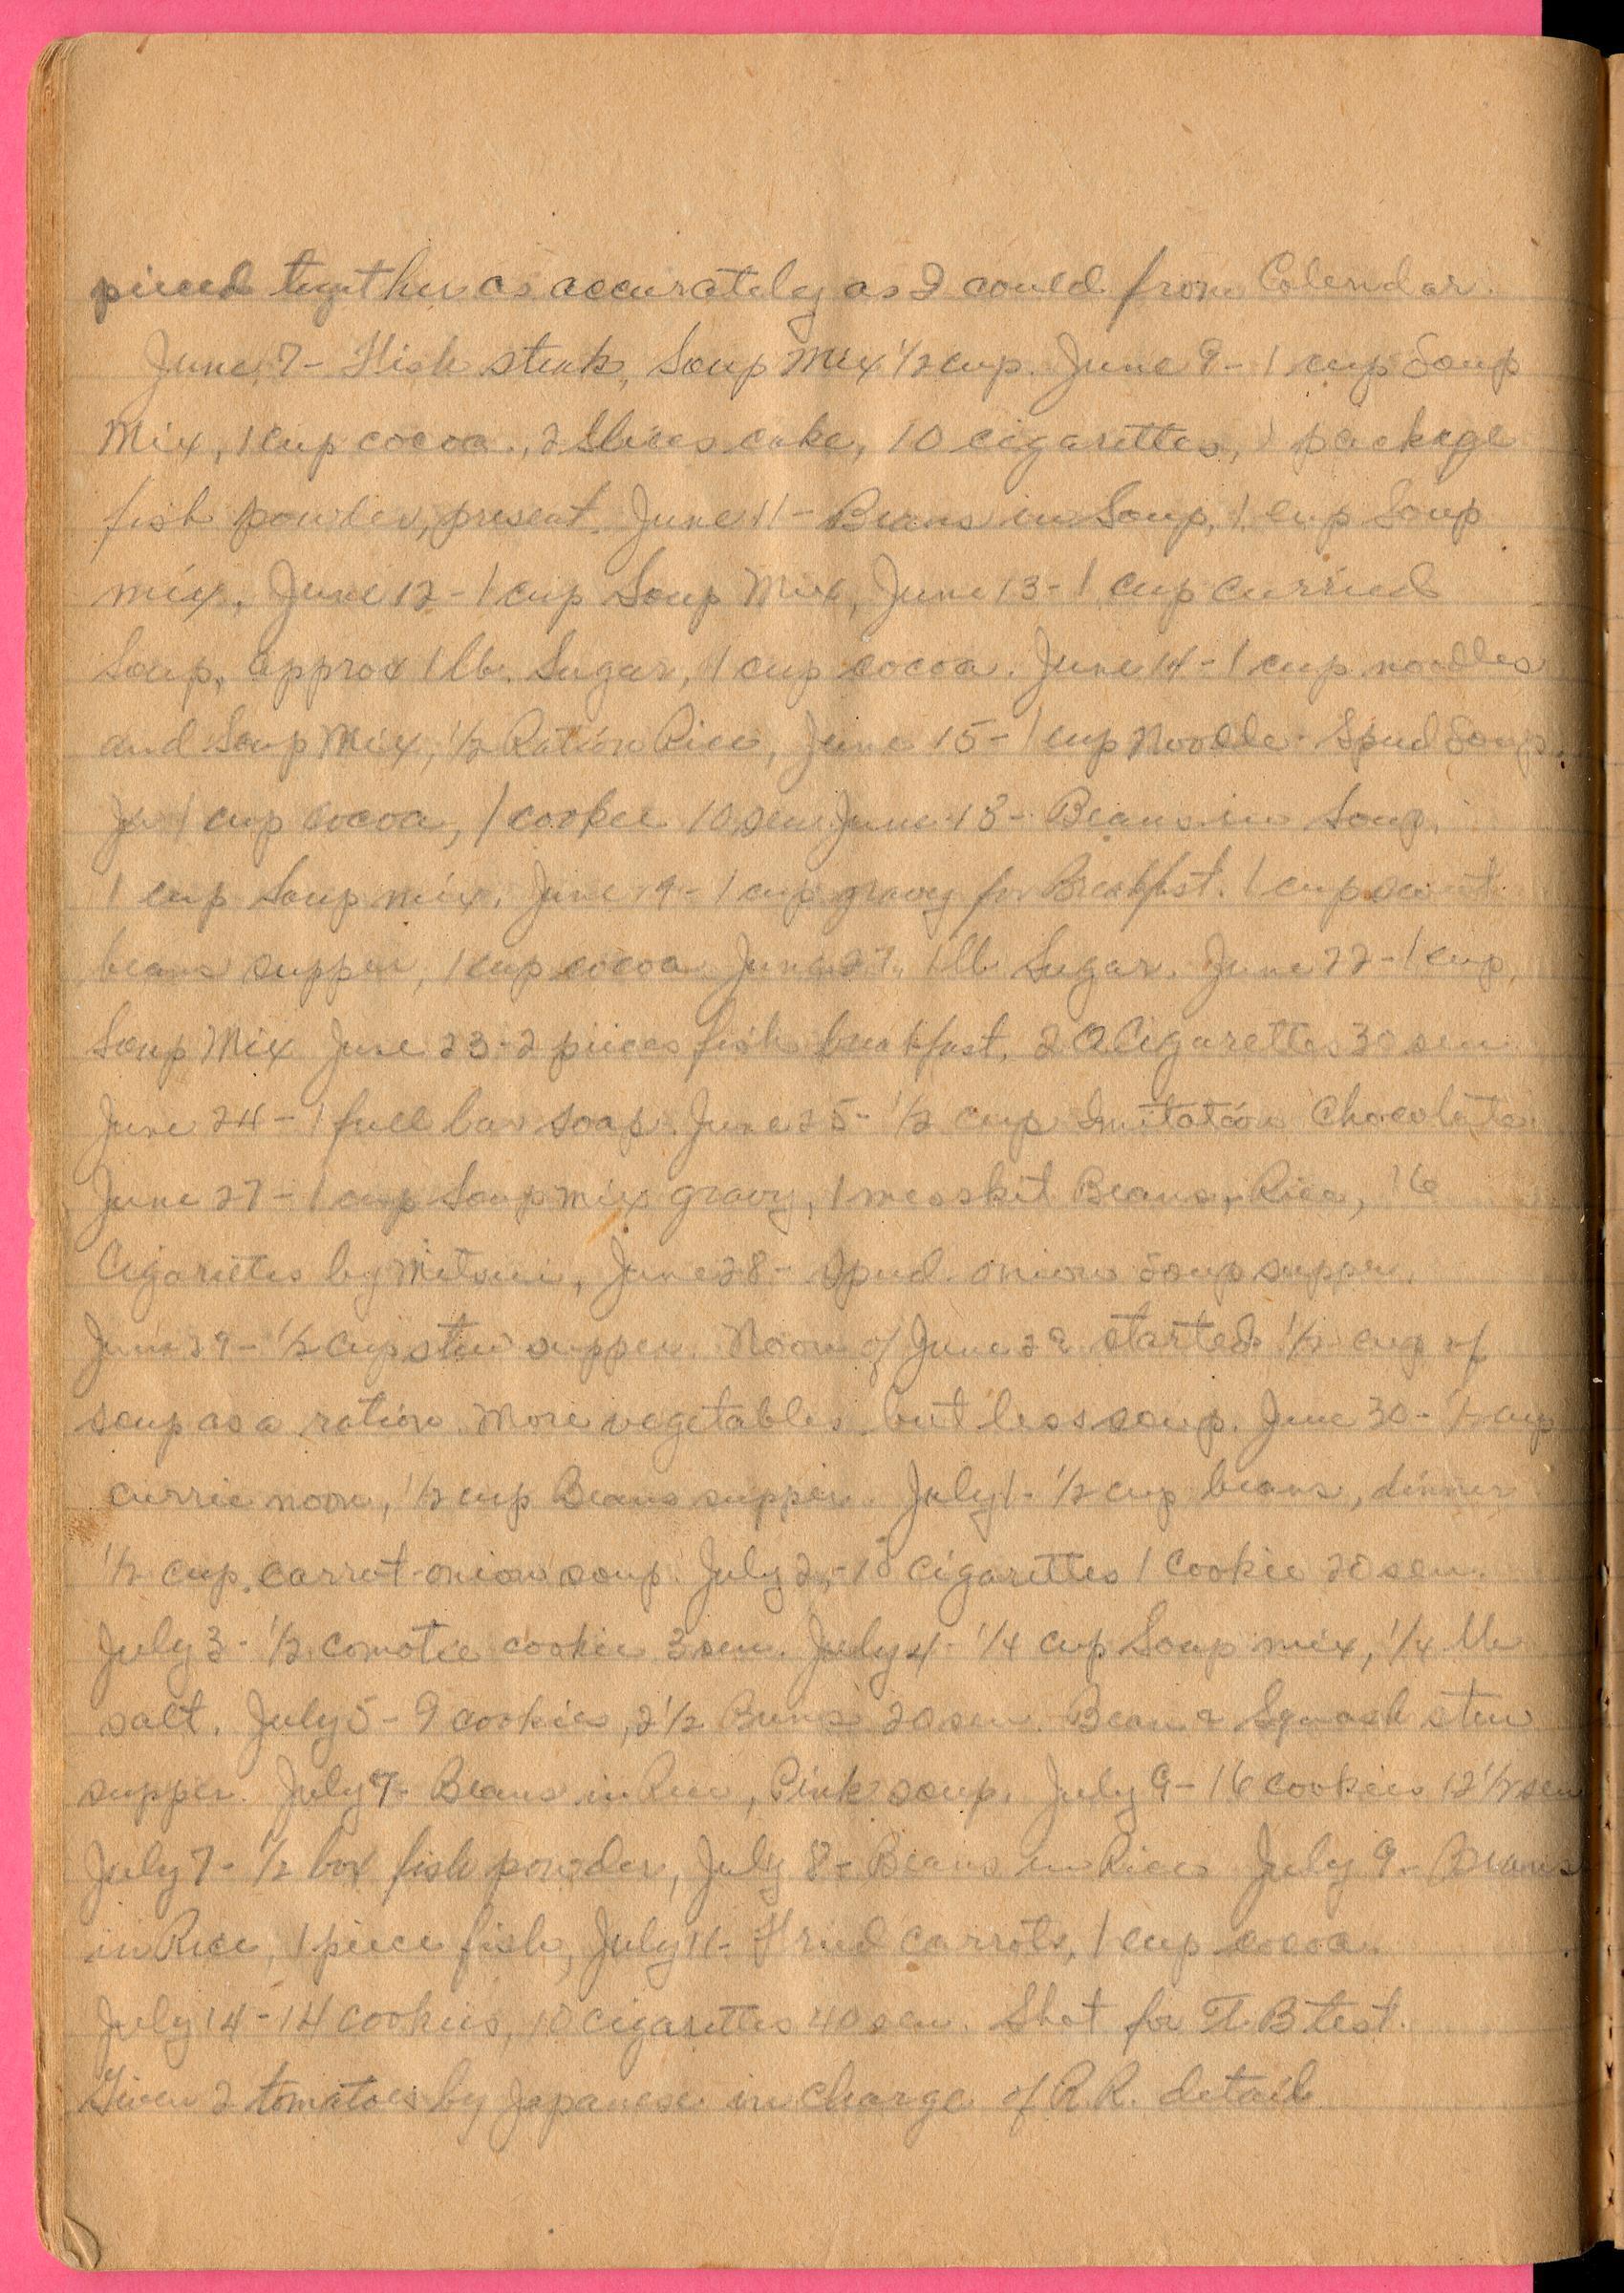 pieced together as accurately as I could from Calendar.
June 7 - Fish steak, Soup Mix 1/2 cup. June 9 - 1 cup Soup
Mix, 1 cup cocoa, 2 Slices cake, 10 cigarettes, 1 package
fish powder, present. June 11 - Beans in Soup, 1 cup Soup
mix. June 12 - 1 cup Soup Mix, June 13 - 1 cup curried
Soup, approx 1 lb. Sugar, 1 cup cocoa. June 14 - 1 cup noodles
and Soup Mix, 1/2 Ration Rice, June 15 - 1 cup Noodle - Spud Soup.
1 cup cocoa, 1 cookie 10 sen June 18 - Beans in Soup,
1 cup Soup mix. June 19 - 1 cup gravy for Breakfast. 1 cup sweet
beans supper, 1 cup cocoa June 1 lb Sugar. June 22 - 1 cup,
Soup Mix June 23 - 2 pieces fish breakfast, 20 Cigarettes 30 sen
June 24 - 1 full bar soap. June 25 - 1/2 cup Imitation Chocolate.
June 27 - 1 cup Soup mix gravy, 1 messkit Beans, Rice, 16
Cigarettes by Mitsui, June 28 - Spud onion Soup supper.
June 29 - 1/2 cup stew supper. Noon of June 29 started 1/2 cup of
soup as a ration. More vegetables but less soup. June 30 - 1/2 cup
currie noon, 1/2 cup Beans supper. July 1 - 1/2 cup beans, dinner
1/2 cup carrot-onion soup. July 2, - 10 cigarettes 1 Cookie 20 sen.
July 3 - 1/2 comotie cookie 3 sen. July 4 - 1/4 cup Soup mix, 1/4 lb
salt. July 5 - 9 cookies, 2 1/2 Buns 20 sen. Bean & Squash stew
supper. July 7 - Beans in Rice, Pink soup. July 9 - 16 cookies 12 1/2 sen
July 7 - 1/2 box fish powder, July 8 - Beans in Rice July 9 - Beans
in Rice, 1 piece fish, July 11 - Fried carrots, 1 cup cocoa.
July 14 - 14 cookies, 10 cigarettes 40 sen. Shot for T.B test.
Given 2 tomatoes by Japanese in charge of R.R. detail